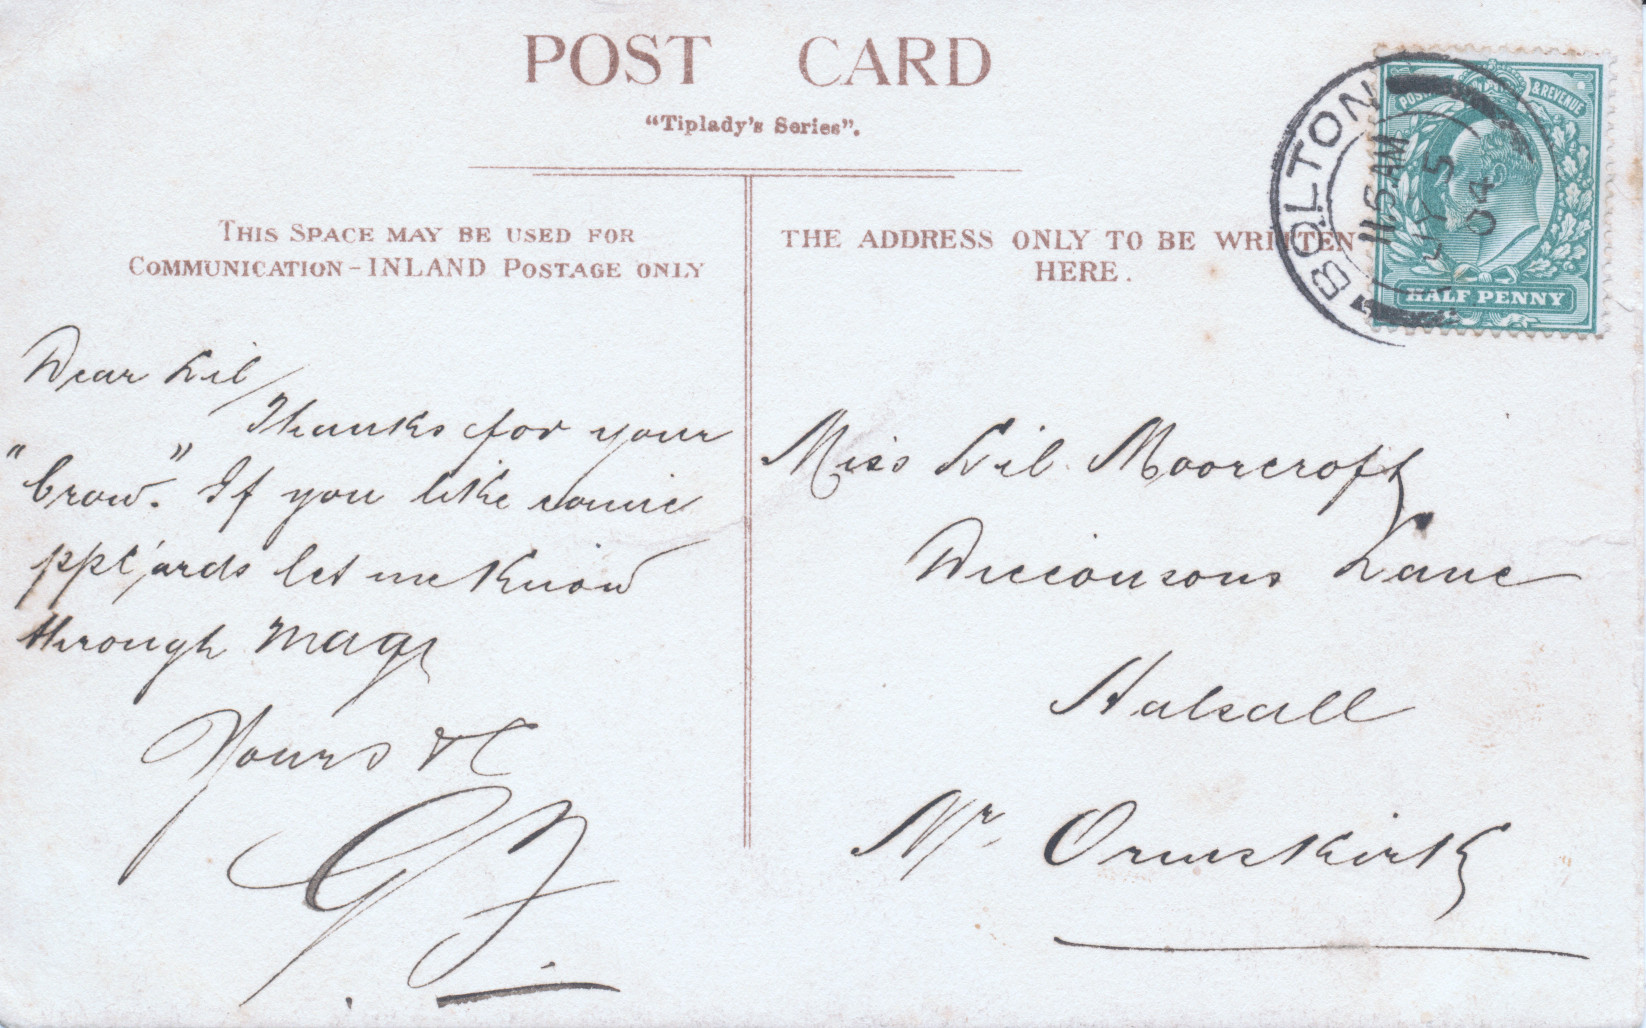 POST CARD
"Tiplady's Series".
THIS SPACE MAY BE USED FOR
COMMUNICATION - INLAND POSTAGE ONLY
THE ADDRESS ONLY TO BE WRITTEN
HERE.
POSTAGE & REVENUE
HALF PENNY
BOLTON
11.5 AM
JY 5
04
Dear Lil/
Thanks for your
"brow." If you like comic
ppc'ards let me know
through Mag
Yours &c
G
Miss Lil Moorcroft
Lane
Halsall
Nr Ormskirk